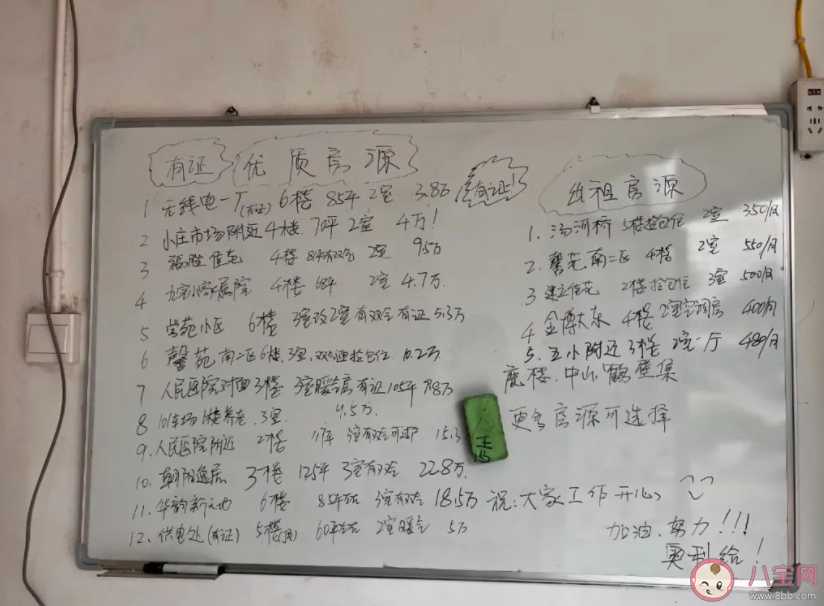 有证 优质房源
1 无线电一厂(有证) 6楼 85平 2室 3.8万
2 小庄市场附近 4楼 70平 2室 4万!
3 福胜佳苑 4楼 2室 9.5万
4 家属院 4楼 68平 2室 4.7万
5 小区 6楼 3室改2室有双气有证 5.3万
6 馨苑南二区 6楼.3室.双气 拎包住
7 人民医院对面 3楼 3室暖 有证 105平
8 1楼 3室
9. 人民医院附近 2楼 3室有双气 15.3
10. 朝阳 3楼 125平 3室有双气 22.8万
11. 华韵新天地 6楼 85平 3室有双气 18.5万
12. 供电处(有证) 5楼 60平 2室暖气 5万
有证!
出租房源
1. 汤河桥 5楼拎包住 2室 350/月
2. 馨苑南二区 4楼 2室 550/月
3 佳苑 2楼 拎包住 3室 500/月
4 金博大东 4楼 2室 400/月
5. 五小附近 3楼 2室一厅 480/月
鹿楼.中山.鹤壁集
更多房源可选择
祝:大家工作开心
加油.努力!!!
奥利给!
八宝网
www.8bb.com